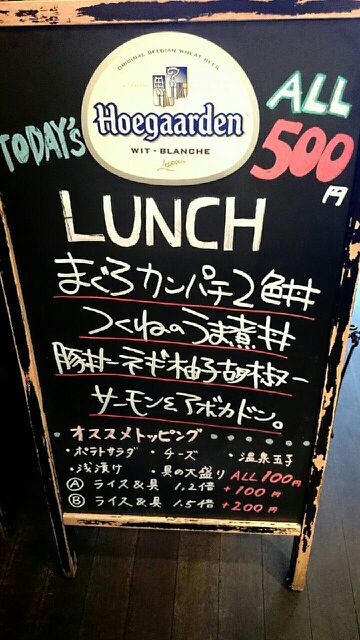 ORIGINAL BELGIAN WHEAT BEER
Hoegaarden
WIT - BLANCHE
TODAY'S
ALL
500
円
LUNCH
まぐろカンパチ2色丼
つくねのうま煮丼
豚丼ーネギ柚子胡椒ー
サーモンとアボカドン。
オススメトッピング
・ポテトサラダ ・チーズ ・温泉玉子
・浅漬け ・具の大盛り ALL 100円
Ⓐ ライス&具 1.2倍 +100円
Ⓑ ライス&具 1.5倍 +200円